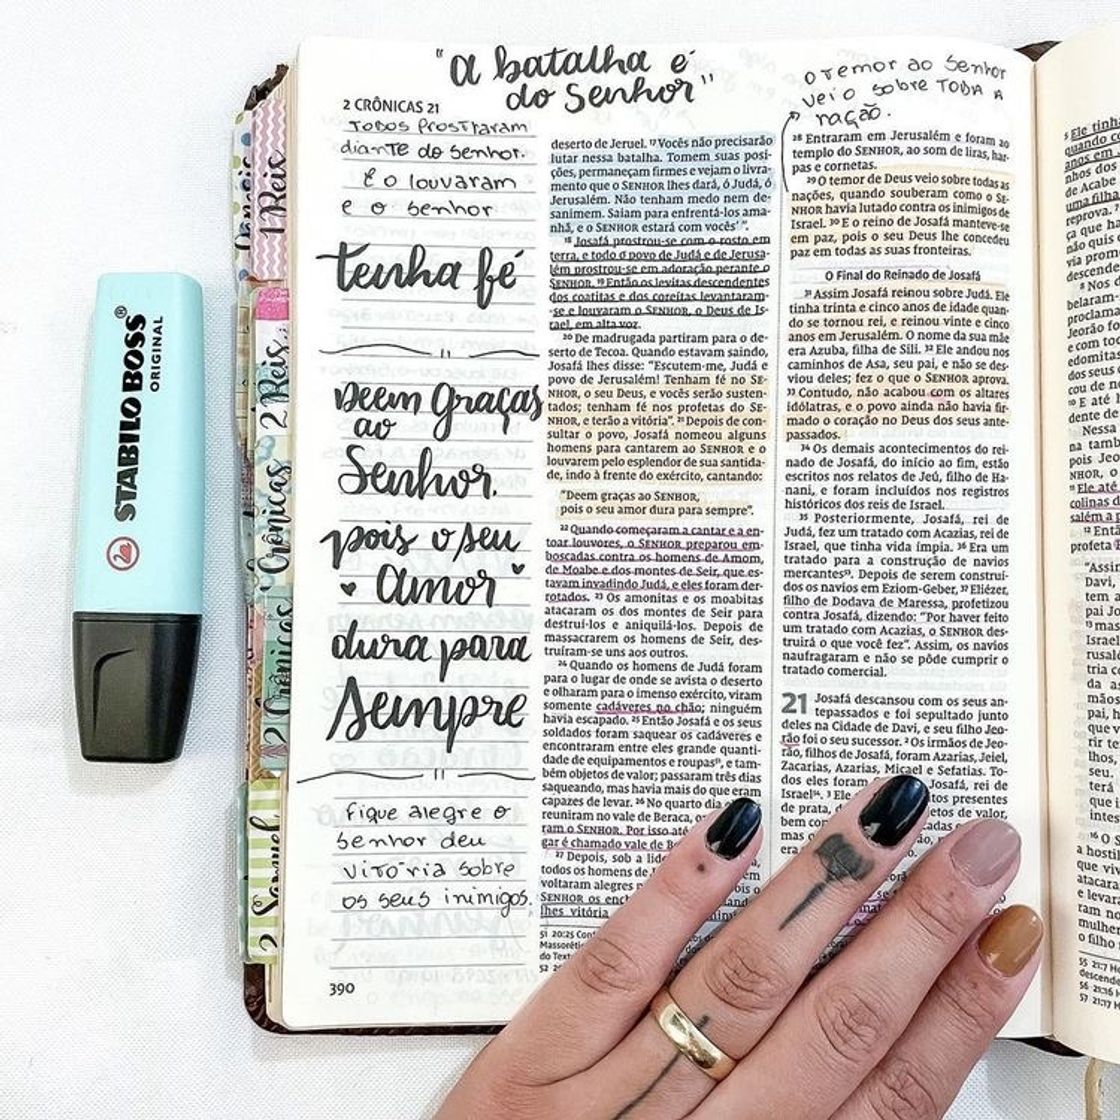 "a batalha é
do Senhor"
o temor ao Senhor
veio sobre TODA A
nação.
2 CRÔNICAS 21
Todos prostraram
diante do Senhor.
E o louvaram
e o senhor
tenha fé
Deem graças
ao
Senhor.
pois o seu
amor
dura para
Sempre
Fique alegre o
Senhor deu
vitória sobre
os seus inimigos.
390
deserto de Jeruel. 17 Vocês não precisarão
lutar nessa batalha. Tomem suas posi-
ções, permaneçam firmes e vejam o livra-
mento que o SENHOR lhes dará, ó Judá, ó
Jerusalém. Não tenham medo nem de-
sanimem. Saiam para enfrentá-los ama-
nhã, e o SENHOR estará com vocês'".
18 Josafá prostrou-se com o rosto em
terra, e todo o povo de Judá e de Jerusa-
lém prostrou-se em adoração perante o
SENHOR. 19 Então os levitas descendentes
dos coatitas e dos coreítas levantaram-
-se e louvaram o SENHOR, o Deus de Is-
rael, em alta voz.
20 De madrugada partiram para o de-
serto de Tecoa. Quando estavam saindo,
Josafá lhes disse: "Escutem-me, Judá e
povo de Jerusalém! Tenham fé no SE-
NHOR, o seu Deus, e vocês serão susten-
tados; tenham fé nos profetas do SE-
NHOR, e terão a vitória". 21 Depois de con-
sultar o povo, Josafá nomeou alguns
homens para cantarem ao SENHOR e o
louvarem pelo esplendor de sua santida-
de, indo à frente do exército, cantando:
"Deem graças ao SENHOR,
pois o seu amor dura para sempre".
22 Quando começaram a cantar e a en-
toar louvores, o SENHOR preparou em-
boscadas contra os homens de Amom,
de Moabe e dos montes de Seir, que es-
tavam invadindo Judá, e eles foram der-
rotados. 23 Os amonitas e os moabitas
atacaram os dos montes de Seir para
destruí-los e aniquilá-los. Depois de
massacrarem os homens de Seir, des-
truíram-se uns aos outros.
24 Quando os homens de Judá foram
para o lugar de onde se avista o deserto
e olharam para o imenso exército, viram
somente cadáveres no chão; ninguém
havia escapado. 25 Então Josafá e os seus
soldados foram saquear os cadáveres e
encontraram entre eles grande quanti-
dade de equipamentos e roupas, e tam-
bém objetos de valor; passaram três dias
saqueando, mas havia mais do que eram
capazes de levar. 26 No quarto dia
reuniram no vale de Beraca, o
ram o SENHOR. Por isso até
gar é chamado vale de B
27 Depois, sob a lide
todos os homens de J
voltaram alegres
SENHOR os ench
lhes vitória
51 20:25
Massoré
do Text
52
28 Entraram em Jerusalém e foram ao
templo do SENHOR, ao som de liras, har-
pas e cornetas.
29 O temor de Deus veio sobre todas as
nações, quando souberam como o SE-
NHOR havia lutado contra os inimigos de
Israel. 30 E o reino de Josafá manteve-se
em paz, pois o seu Deus lhe concedeu
paz em todas as suas fronteiras.
O Final do Reinado de Josafá
31 Assim Josafá reinou sobre Judá. Ele
tinha trinta e cinco anos de idade quan-
do se tornou rei, e reinou vinte e cinco
anos em Jerusalém. O nome da sua mãe
era Azuba, filha de Sili. 32 Ele andou nos
caminhos de Asa, seu pai, e não se des-
viou deles; fez o que o SENHOR aprova.
33 Contudo, não acabou com os altares
idólatras, e o povo ainda não havia fir-
mado o coração no Deus dos seus ante-
passados.
34 Os demais acontecimentos do rei-
nado de Josafá, do início ao fim, estão
escritos nos relatos de Jeú, filho de Ha-
nani, e foram incluídos nos registros
históricos dos reis de Israel.
35 Posteriormente, Josafá, rei de
Judá, fez um tratado com Acazias, rei de
Israel, que tinha vida ímpia. 36 Era um
tratado para a construção de navios
mercantes. Depois de serem construí-
dos os navios em Eziom-Geber, 37 Eliézer,
filho de Dodava de Maressa, profetizou
contra Josafá, dizendo: "Por haver feito
um tratado com Acazias, o SENHOR des-
truirá o que você fez". Assim, os navios
naufragaram e não se pôde cumprir o
tratado comercial.
21 Josafá descansou com os seus an-
tepassados e foi sepultado junto
deles na Cidade de Davi, e seu filho Jeo-
rão foi o seu sucessor. 2 Os irmãos de Jeo-
rão, filhos de Josafá, foram Azarias, Jeiel,
Zacarias, Azarias, Micael e Sefatias. To-
dos eles foram Josafá, rei de
Israel. 3 Ele tos presentes
de prata, de
bem con cadas
mas o
era
1 Reis
2 Reis
Crônicas
2 Crônicas
2 Samuel
STABILO BOSS®
ORIGINAL